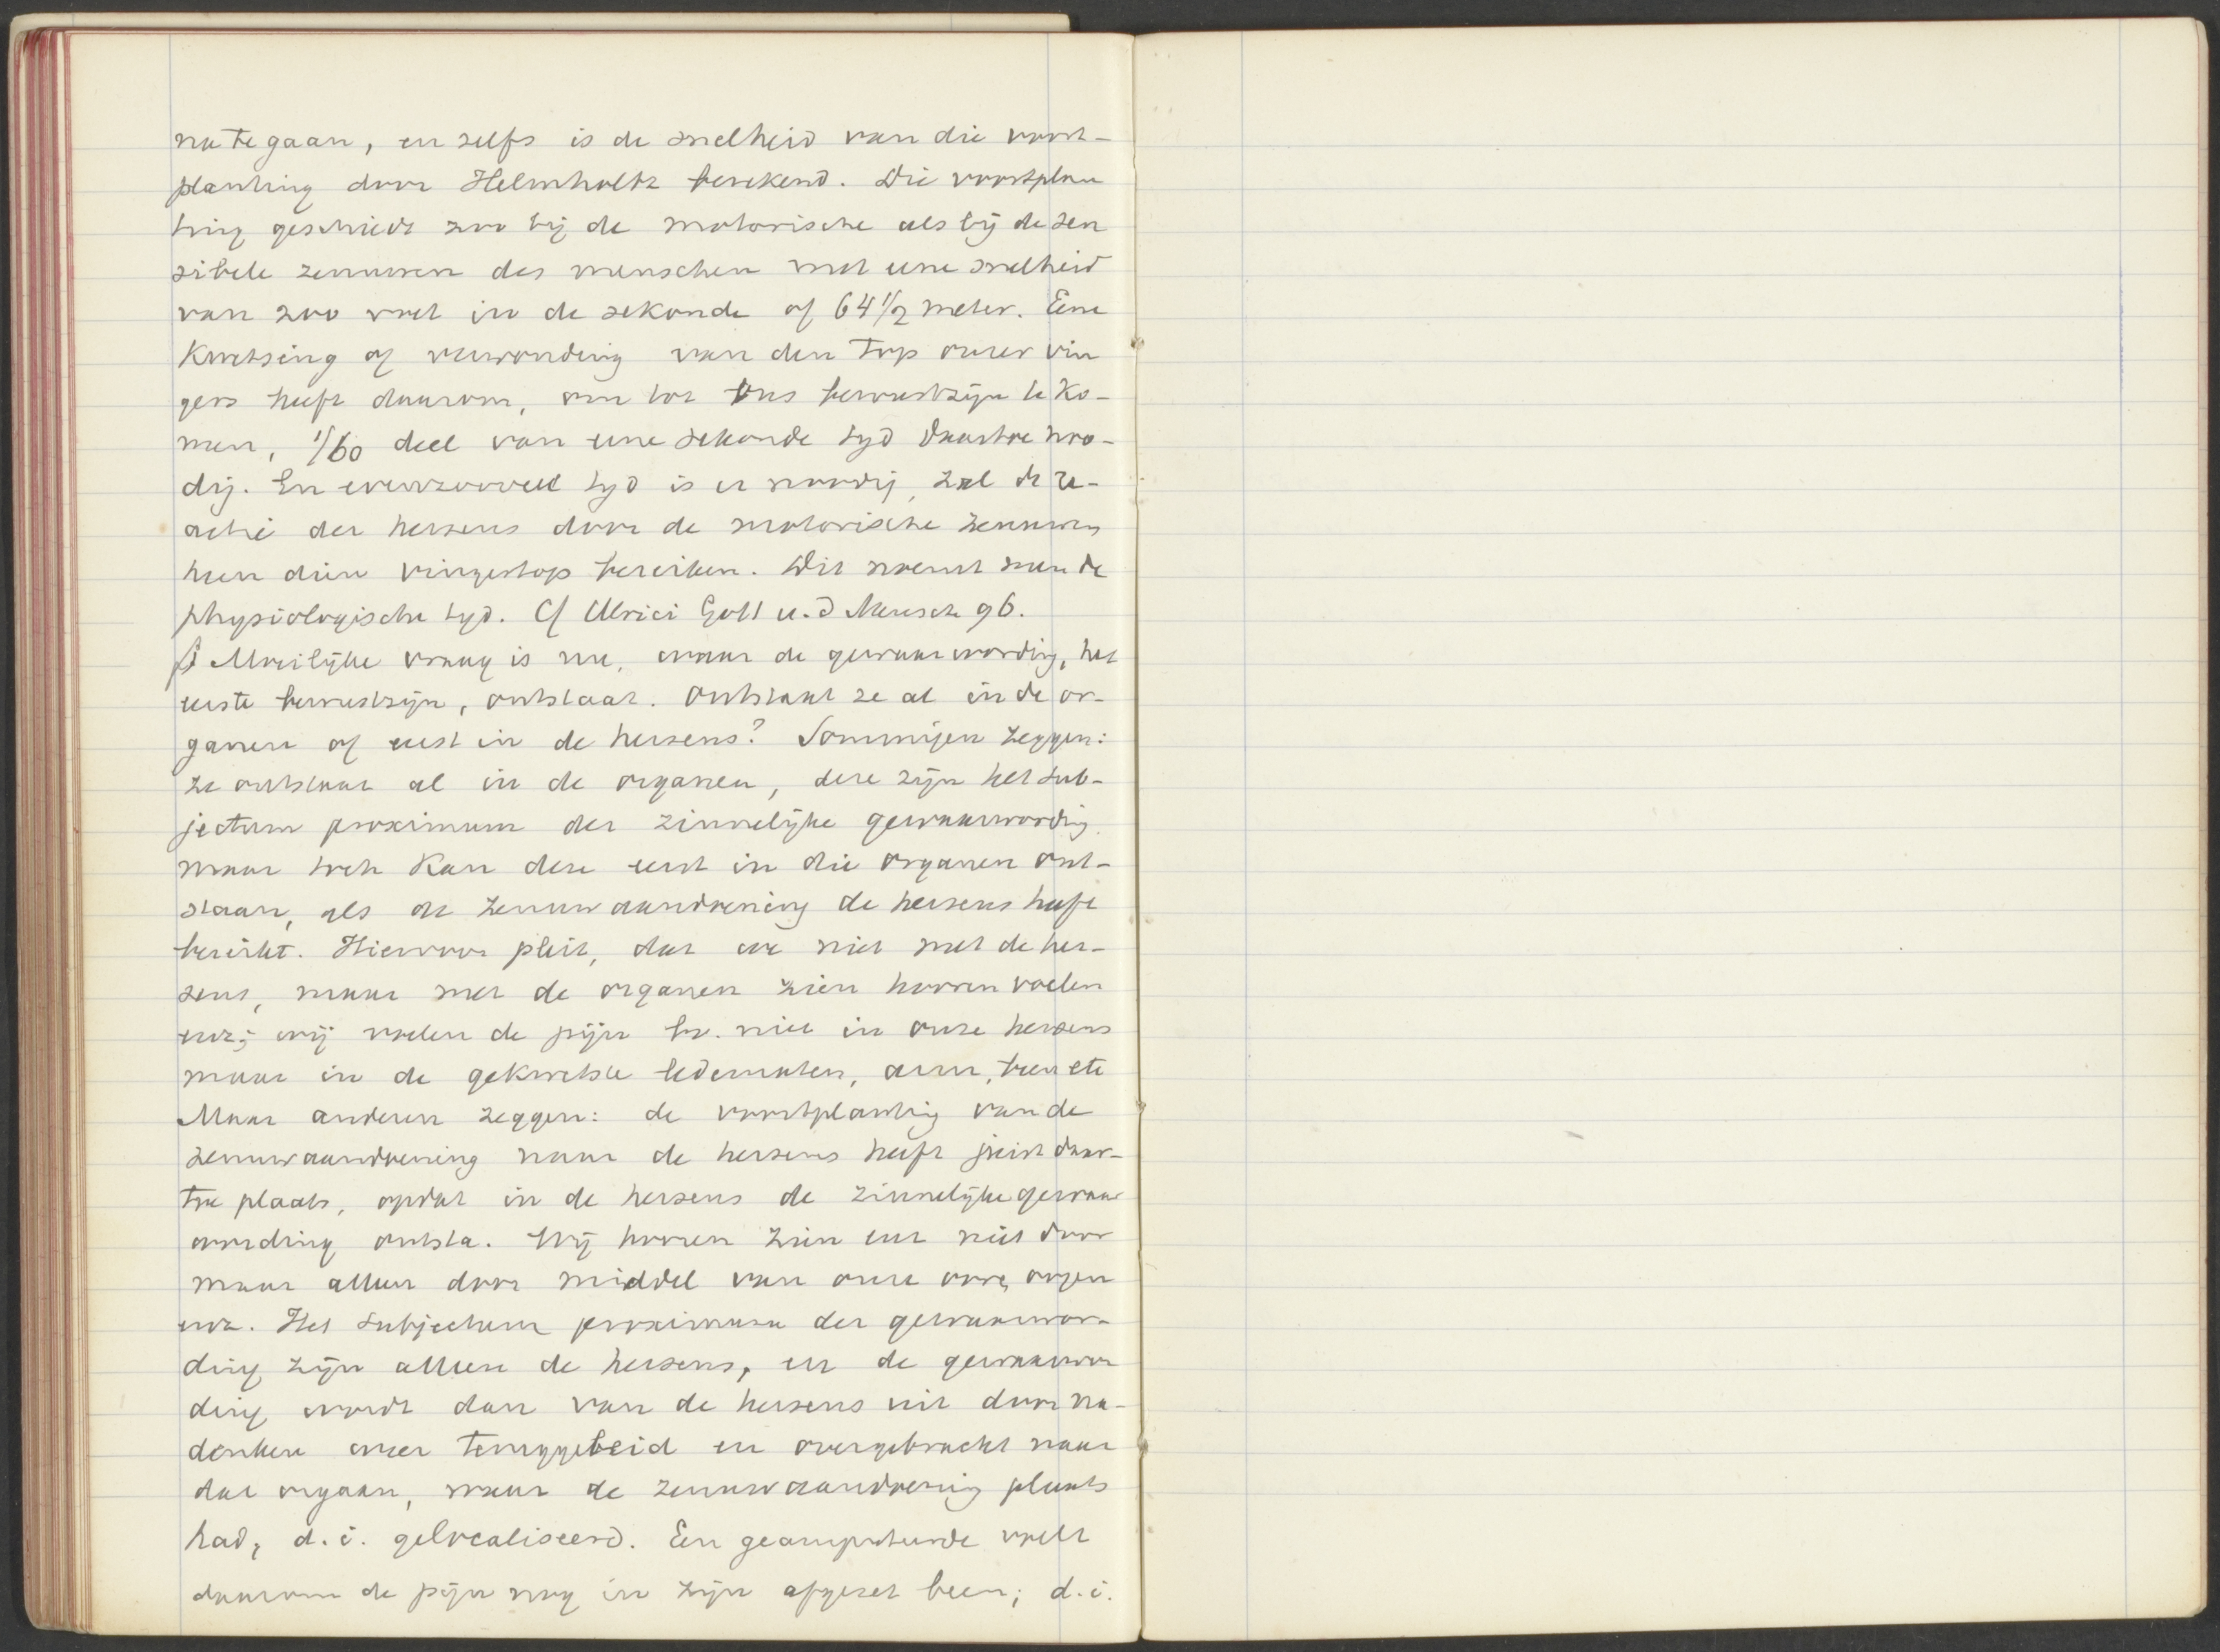 na te gaan, en zelfs is de snelheid van die voort-
planting door Helmholtz berekend. Die voortplan
ting geschiedt zoo bij de motorische als bij de sen
sibele zenuwen des menschen met eene snelheid
van 200 voet in de sekonde of 64 1/2 meter. Eene
Kwetsing of verwonding van den top onzer vin
gers heeft daarom, om tot ons bewustzijn te ko-
men, 1/60 deel van eene sekonde tyd daartoe noo-
dig. En evenzooveel tyd is er noodig, zal de re-
actie der hersens door de motorische zenuwen
heen dien vingertop bereiken. Dit noemt men de
physiologische tyd. Cf Ulrici Gott u. d Mensch 96.
Moeilijke vraag is nu, waar de gewaarwording, het
eerste bewustzijn, ontstaat. Ontstaat ze al in de or-
ganen of eerst in de hersens? Sommigen zeggen:
ze ontstaat al in de organen, deze zijn het sub-
jectum proximum der zinnelijke gewaarwording
maar toch kan deze eerst in die organen ont-
staan, als de zenuwaandoening de hersens heeft
bereikt. Hiervoor pleit, dat we niet met de her-
sens, maar met de organen zien hooren voelen
enz; wij voelen de pijn bv. niet in onze hersens
maar in de gekwetste ledematen, arm, been etc
Maar anderen zeggen: de voortplanting van de
zenuwaandoening naar de hersens heeft juist daar-
toe plaats, opdat in de hersens de zinnelijke gewaar
wording ontsta. Wij hooren zien enz niet door
maar alleen door middel van onze ooren, oogen
enz. Het subjectum proximum der gewaarwor-
ding zijn alleen de hersens, en de gewaarwor
ding wordt dan van de hersens uit door na-
denken weer teruggeleid en overgebracht naar
dat orgaan, waar de zenuwaandoening plaats
had, d.i. gelocaliseerd. Een geamputeerde voelt
daarom de pijn nog in zijn afgezet been; d.i.